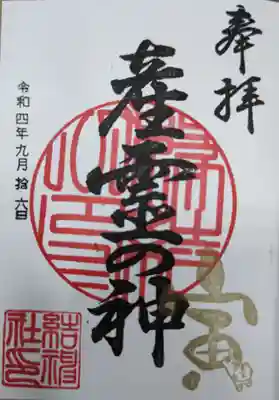 奉拝
産霊の神
令和四年九月拾六日
壬寅
結神社印